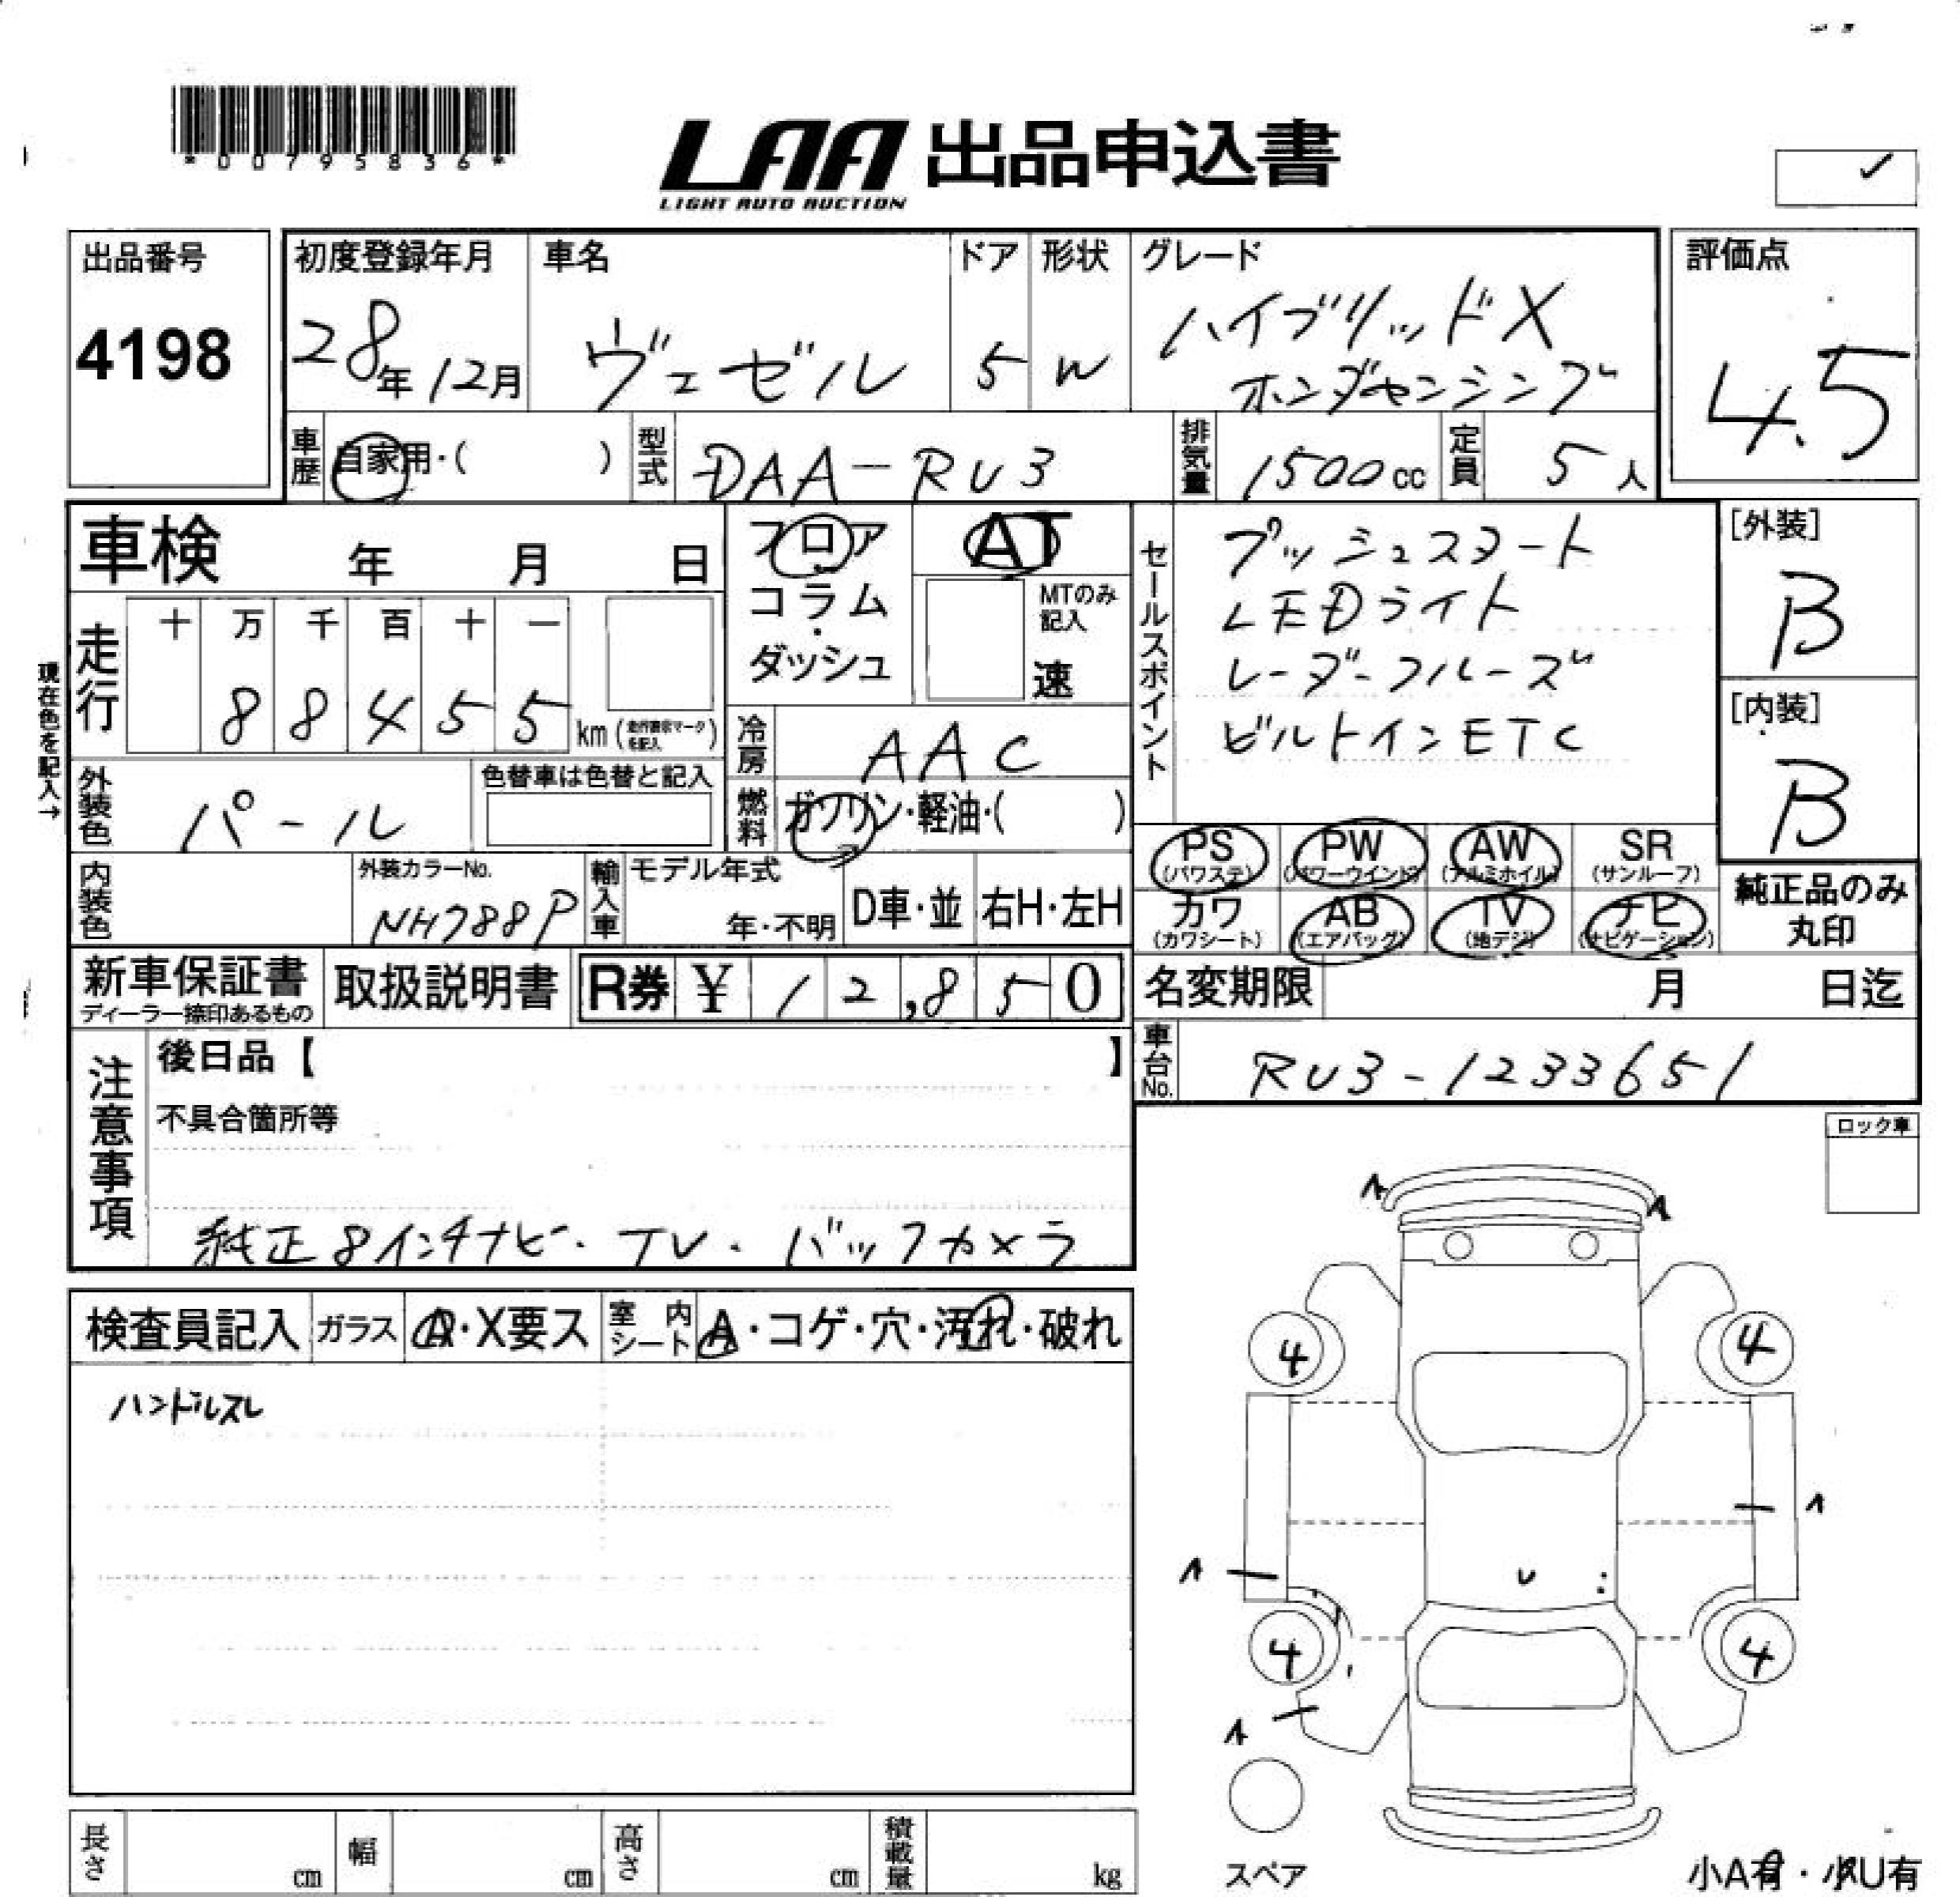 *00795836*
LAA 出品申込書
LIGHT AUTO AUCTION
出品番号
4198
初度登録年月
28年12月
車名
ヴェゼル
ドア
5
形状
W
グレード
ハイブリッドX
ホンダセンシング
評価点
4.5
車歴
自家用・( )
型式
DAA-RU3
排気量
1500cc
定員
5人
車検 年 月 日
フロア
コラム
・
ダッシュ
AT
MTのみ
記入
速
セールスポイント
プッシュスタート
LEDライト
レーダークルーズ
ビルトインETC
[外装]
B
[内装]
B
現在色を記入→
走行
十 万 千 百 十 一
8 8 4 5 5 km
冷房
AAC
外装色
パール
色替車は色替と記入
燃料
ガソリン・軽油・( )
内装色
外装カラーNo.
NH788P
輸入車
モデル年式
年・不明
D車・並
右H・左H
PS
(パワステ)
PW
(パワーウインド)
AW
(アルミホイル)
SR
(サンルーフ)
カワ
(カワシート)
AB
(エアバッグ)
TV
(地デジ)
ナビ
(ナビゲーション)
純正品のみ
丸印
新車保証書
ディーラー捺印あるもの
取扱説明書
R券 ¥ 12,850
名変期限 月 日迄
車台No.
RU3-1233651
注意事項
後日品【 】
不具合箇所等
純正8インチナビ・TV・バックカメラ
ロック車
検査員記入
ガラス
A・X要ス
室内
シート
A・コゲ・穴・汚れ・破れ
ハンドルスレ
A
A
4
4
A
A
U
4
4
A
スペア
小A有・小U有
長さ cm
幅 cm
高さ cm
積載量 kg